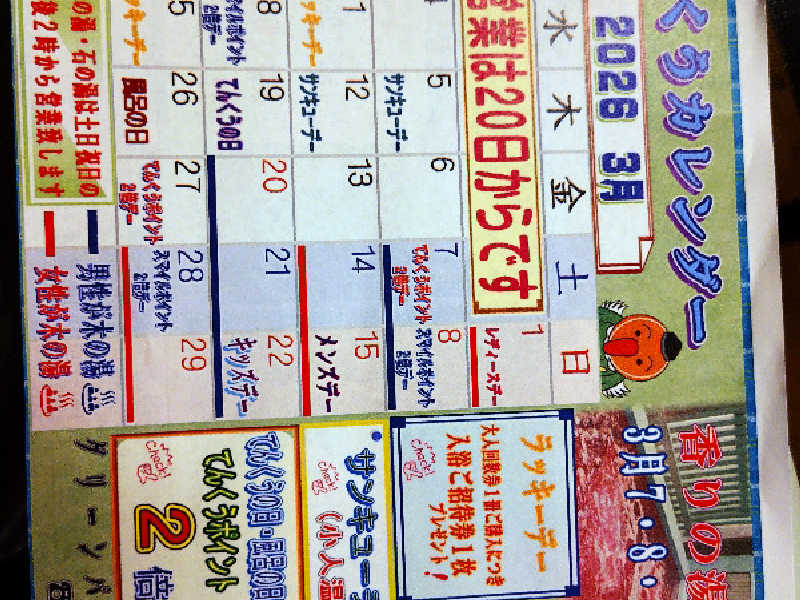 くうカレンダー
2026 3月
水 木 金 土 日
営業は20日からです
1
レディースデー
5 6 7 8
サンキューデー
てんくうポイント2倍デー
スマイルポイント2倍デー
12 13 14 15
ラッキーデー
サンキューデー
メンズデー
19 20 21 22
スマイルポイント2倍デー
てんくうの日
キッズデー
26 27 28 29
ラッキーデー
風呂の日
てんくうポイント2倍デー
スマイルポイント2倍デー
の湯・石の湯は土日祝日の
後2時から営業致します
男性が木の湯
女性が木の湯
香りの湯
3月7・8・
ラッキーデー
大人回数券1冊ご購入につき
入浴ご招待券1枚
プレゼント!
サンキュー
(小人
てんくうの日・風呂の日
てんくうポイント
2倍
グリーンバ